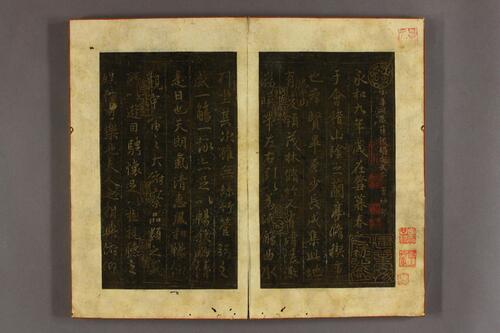 永和九年歲在癸丑暮春
于會稽山陰之蘭亭脩禊事
也群賢畢至少長咸集此地
有峻領茂林脩竹又有清流激
湍暎帶左右引以為流觴曲水
列坐其次雖無絲竹管弦之
盛一觴一詠亦足以暢敘幽情
是日也天朗氣清惠風和暢仰
觀宇宙之大俯察品類之盛
所以遊目騁懷足以極視聽之
娛信可樂也夫人之相與俯仰